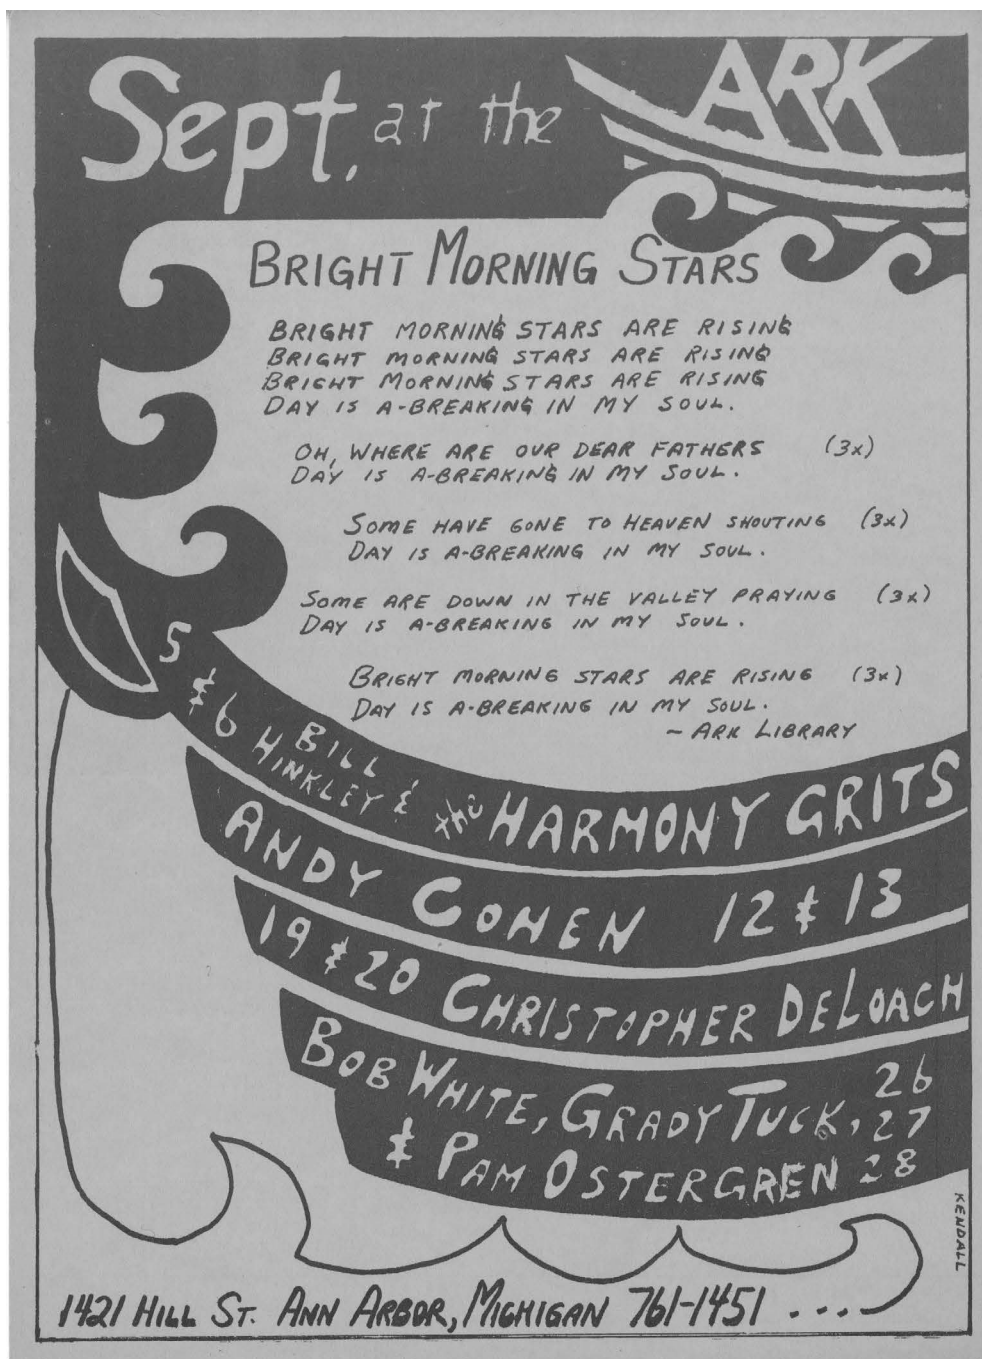 Sept. at the ARK
BRIGHT MORNING STARS
BRIGHT MORNING STARS ARE RISING
BRIGHT MORNING STARS ARE RISING
BRIGHT MORNING STARS ARE RISING
DAY IS A-BREAKING IN MY SOUL.
OH, WHERE ARE OUR DEAR FATHERS (3x)
DAY IS A-BREAKING IN MY SOUL.
SOME HAVE GONE TO HEAVEN SHOUTING (3x)
DAY IS A-BREAKING IN MY SOUL.
SOME ARE DOWN IN THE VALLEY PRAYING (3x)
DAY IS A-BREAKING IN MY SOUL.
BRIGHT MORNING STARS ARE RISING (3x)
DAY IS A-BREAKING IN MY SOUL.
~ ARK LIBRARY
5 & 6 BILL HINKLEY & the HARMONY GRITS
ANDY COHEN 12 & 13
19 & 20 CHRISTOPHER DELOACH
BOB WHITE, GRADY TUCK, 26
27
& PAM OSTERGREN 28
KENDALL
1421 HILL ST. ANN ARBOR, MICHIGAN 761-1451 ....